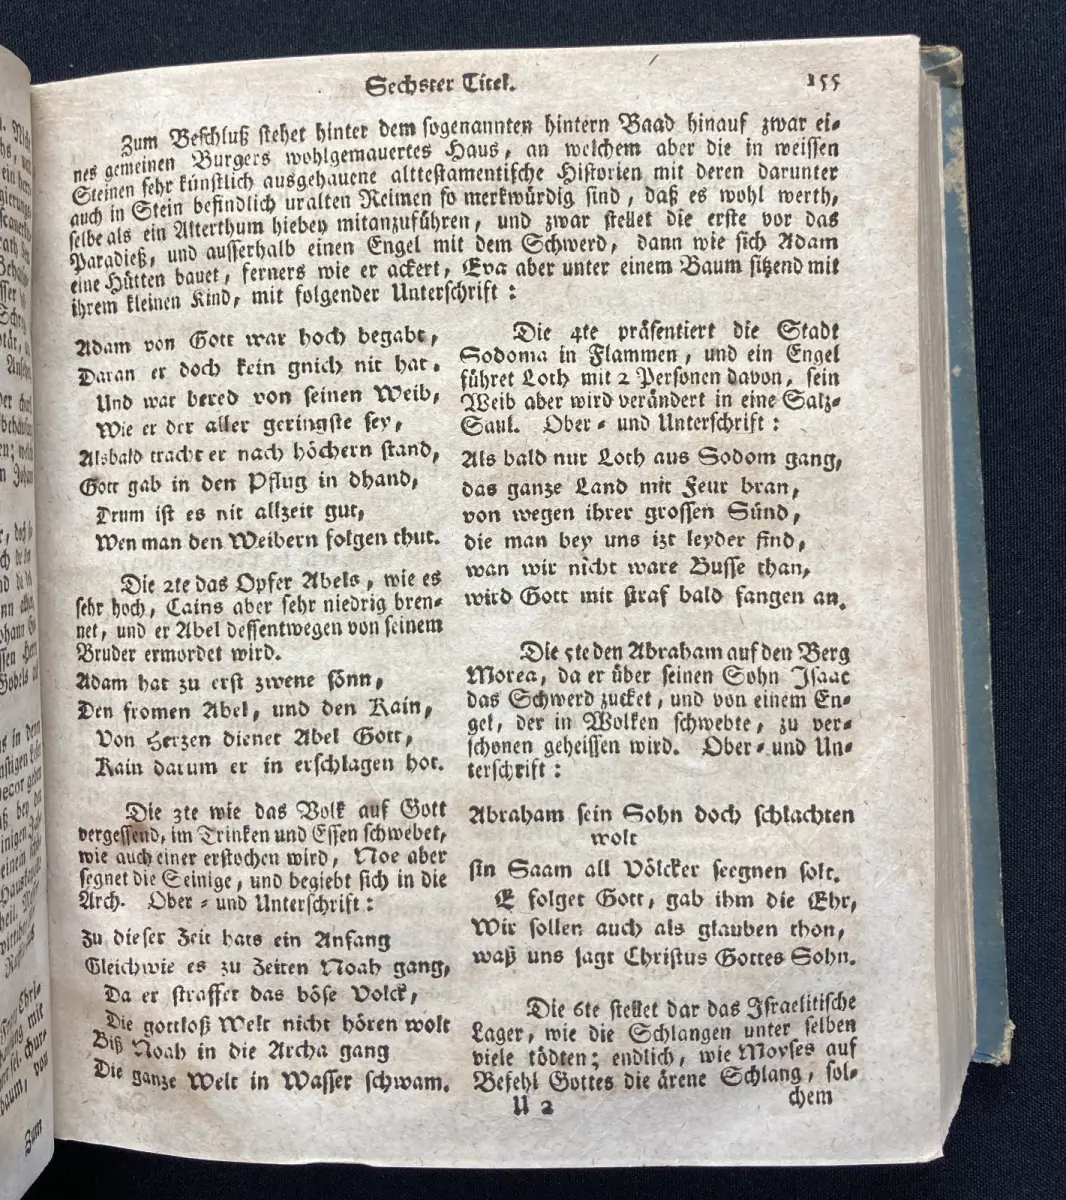 Sechster Titel.
155
Zum Beschluß stehet hinter dem sogenannten hintern Baad hinauf zwar ei-
nes gemeinen Burgers wohlgemauertes Haus, an welchem aber die in weissen
Steinen sehr künstlich ausgehauene alttestamentische Historien mit deren darunter
auch in Stein befindlich uralten Reimen so merkwürdig sind, daß es wohl werth,
selbe als ein Alterthum hiebey mitanzuführen, und zwar stellet die erste vor das
Paradieß, und ausserhalb einen Engel mit dem Schwerd, dann wie sich Adam
eine Hütten bauet, ferners wie er ackert, Eva aber unter einem Baum sitzend mit
ihrem kleinen Kind, mit folgender Unterschrift:
Adam von Gott war hoch begabt,
Daran er doch kein gnich nit hat.
Und war bered von seinen Weib,
Wie er der aller geringste sey,
Alsbald tracht er nach höchern stand,
Gott gab in den Pflug in dhand,
Drum ist es nit allzeit gut,
Wen man den Weibern folgen thut.
Die 2te das Opfer Abels, wie es
sehr hoch, Cains aber sehr niedrig bren-
net, und er Abel dessentwegen von seinem
Bruder ermordet wird.
Adam hat zu erst zwene sönn,
Den fromen Abel, und den Kain,
Von Herzen dienet Abel Gott,
Kain darum er in erschlagen hot.
Die 3te wie das Volk auf Gott
vergessend, im Trinken und Essen schwebet,
wie auch einer erstochen wird, Noe aber
segnet die Seinige, und begiebt sich in die
Arch. Ober- und Unterschrift:
Zu dieser Zeit hats ein Anfang
Gleichwie es zu Zeiten Noah gang,
Da er straffet das böse Volck,
Die gottloß Welt nicht hören wolt
Biß Noah in die Archa gang
Die ganze Welt in Wasser schwam.
Die 4te präsentiert die Stadt
Sodoma in Flammen, und ein Engel
führet Loth mit 2 Personen davon, sein
Weib aber wird verändert in eine Salz-
Saul. Ober- und Unterschrift:
Als bald nur Loth aus Sodom gang,
das ganze Land mit Feur bran,
von wegen ihrer grossen Sünd,
die man bey uns izt leyder find,
wan wir nicht ware Busse than,
wird Gott mit straf bald fangen an.
Die 5te den Abraham auf den Berg
Morea, da er über seinen Sohn Isaac
das Schwerd zucket, und von einem En-
gel, der in Wolken schwebte, zu ver-
schonen geheissen wird. Ober- und Un-
terschrift:
Abraham sein Sohn doch schlachten
wolt
sin Saam all Völcker seegnen solt.
E folget Gott, gab ihm die Ehr,
Wir sollen auch als glauben thon,
waß uns sagt Christus Gottes Sohn.
Die 6te stellet dar das Israelitische
Lager, wie die Schlangen unter selben
viele tödten; endlich, wie Moyses auf
Befehl Gottes die ärene Schlang, sol-
U 2
chem